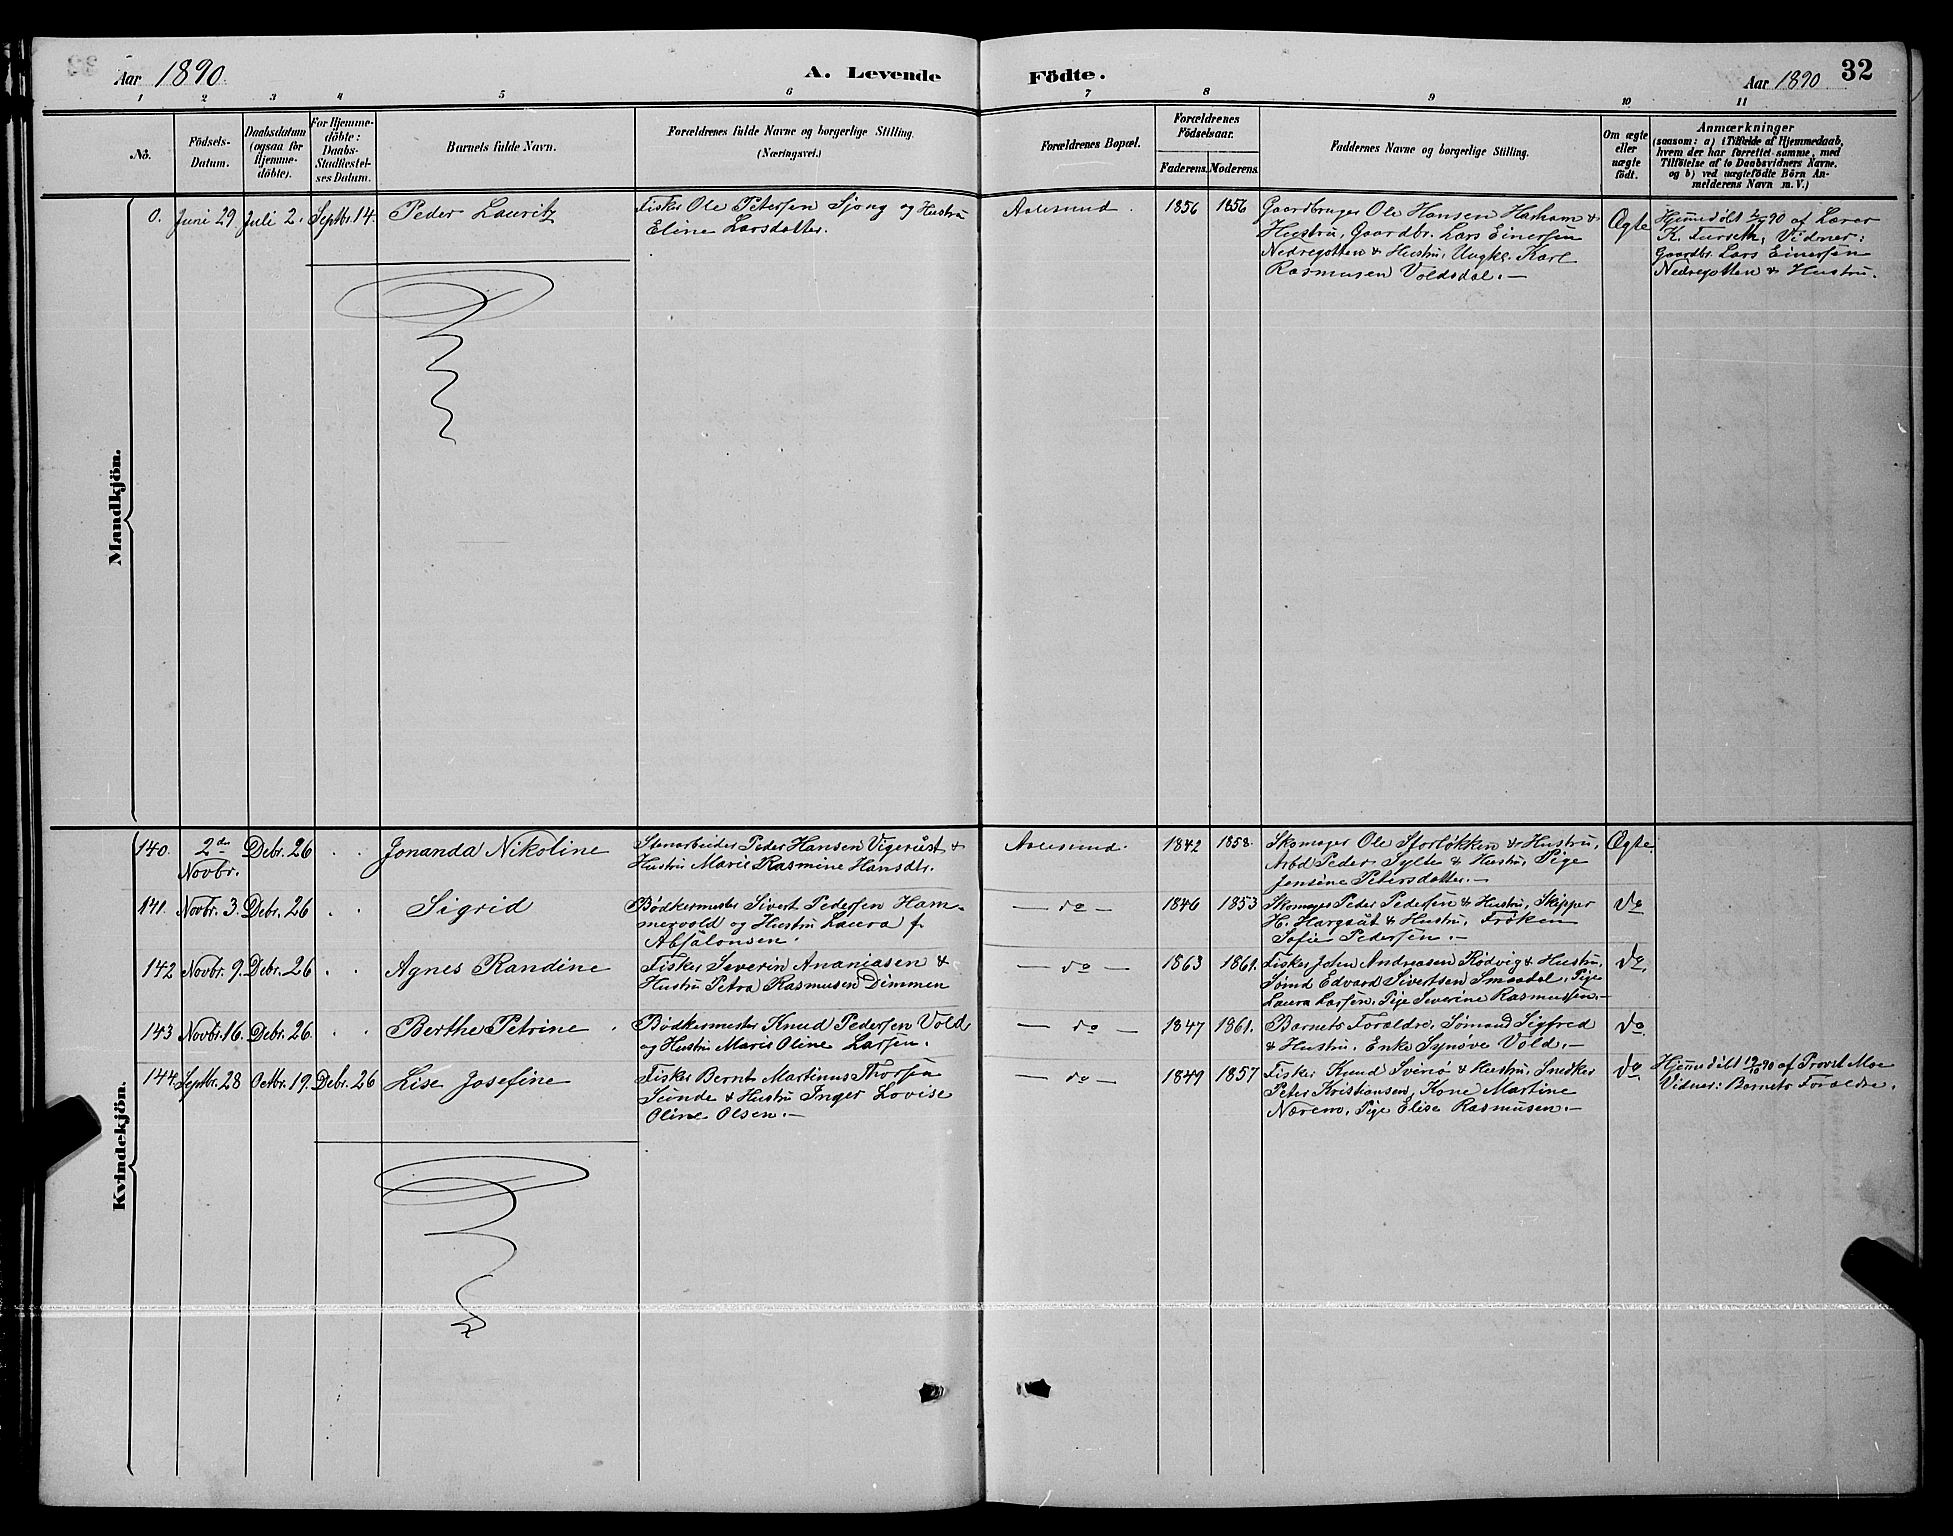 Aar 1890.
A. Levende Födte.
Aar 1890
32
1 2 3 4 5 6 7 8 9 10 11
No.
Födsels-
Datum.
Daabsdatum
(ogsaa for
Hjemme-
döbte).
For Hjemme-
döbte:
Daabs-
Stadfæstel-
ses Datum.
Barnets fulde Navn.
Forældrenes fulde Navne og borgerlige Stilling.
(Næringsvei.)
Forældrenes Bopæl.
Forældrenes
Födselsaar.
Faderens. Moderens.
Faddernes Navne og borgerlige Stilling.
Om ægte
eller
uægte
födt.
Anmærkninger
(saasom: a) i Tilfælde af Hjemmedaab,
hvem der har forrettet samme, med
Tilföielse af to Daabsvidners Navne.
og b) ved uægtefödte Börn An-
melderens Navn m. V.)
Mandkjön.
0. Juni 29 Juli 2. Septbr. 14. Peder Lauritz
Fisker Ole Petersen Sjong og Hustru
Eline Larsdatter.
Aalesund. 1856 1856
Gaardbruger Ole Hansen Harham &
Hustru, Gaardbr. Lars Einersen
Nedregotten & Hustru, Ungkl. Karl
Rasmusen Voldsdal.—
Ægte
Hjemmedøbt 2/7 90 af Lærer
K. Furseth, Vidner:
Gaardbr. Lars Einersen
Nedregotten & Hustru.
Kvindekjön.
140. 2den
Novbr. Debr. 26 Jonanda Nikoline
Stenarbeider Peder Hansen Vigerust &
Hustru Marie Rasmine Hansdtr.
Aalesund. 1842 1858.
Skomager Ole Storløkken & Hustru,
Arbd Peder Sylte & Hustru, Pige
Jensine Petersdatter.—
Ægte
141. Novbr. 3. Debr. 26 Sigrid
Bødkermester Sivert Pedersen Ham-
mervold og Hustru Laura f.
Absalonsen.
— do — 1846 1853
Skomager Peder Pedersen & Hustru, Skipper
H. Hargaut & Hustru, Frøken
Sofie Pedersen.—
do
142 Novbr. 9. Debr. 26 Agnes Randine
Fisker Severin Ananiasen &
Hustru Petra Rasmusen Dimmen
— do — 1863 1861.
Fisker John Andreasen Rödvig & Hustru,
Sömd Edvard Sivertsen Smaadal, Pige
Laura Larsen, Pige Severine Rasmussen.—
do.
143 Novbr. 16. Debr. 26. Berthe Petrine
Bødkermester Knud Pedersen Vold
og Hustru Marie Oline Larsen.
— do — 1847 1861.
Barnets Forældre, Sömand Sigfred
& Hustru, Enke Synøve Vold.—
do
144. Septbr. 28 Octbr. 19. Debr. 26 Lise Josefine
Fisker Bernt Martinus Thorsen
Sunde & Hustru Inger Lovise
Oline Olsen.—
— do — 1849 1857
Fisker Knud Svinö & Hustru, Snedker
Peter Kristiansen, Kone Martine
Nærem, Pige Elise Rasmusen.—
do
Hjemmedöbt 19/10 90 af Provst Moe
Vidner: Barnets Forældre.